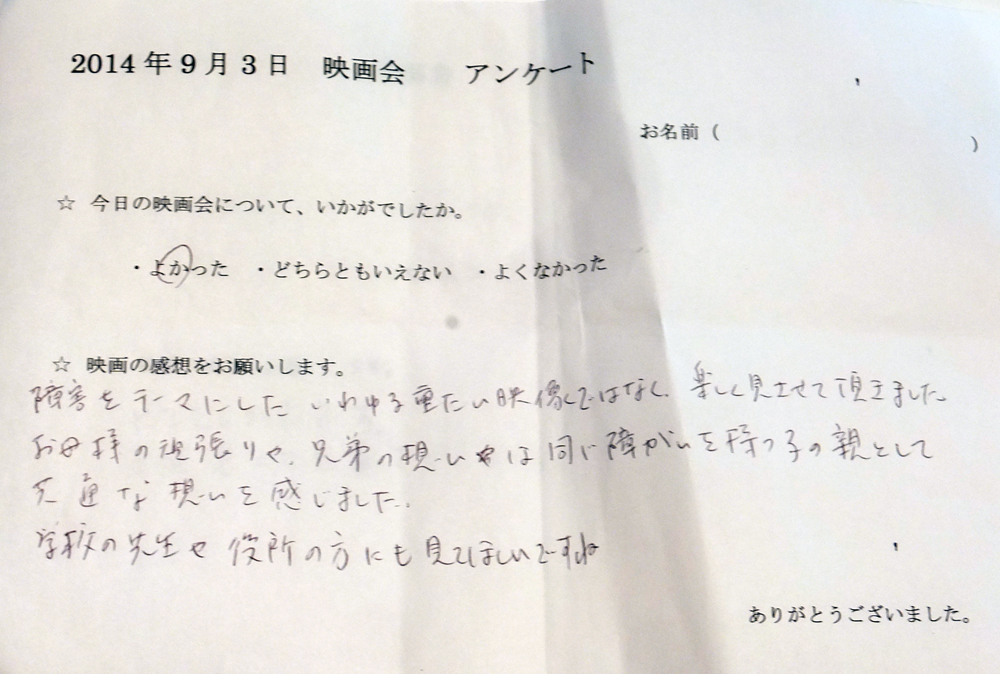 2014年9月3日 映画会 アンケート
お名前(                )
☆ 今日の映画会について、いかがでしたか。
・よかった ・どちらともいえない ・よくなかった
☆ 映画の感想をお願いします。
障害をテーマにした いわゆる重たい映像ではなく、楽しく見させて頂きました。
お母様の頑張りや、兄弟の想いは同じ障がいを持つ子の親として
共通な想いを感じました。
学校の先生や役所の方にも見てほしいですね
ありがとうございました。